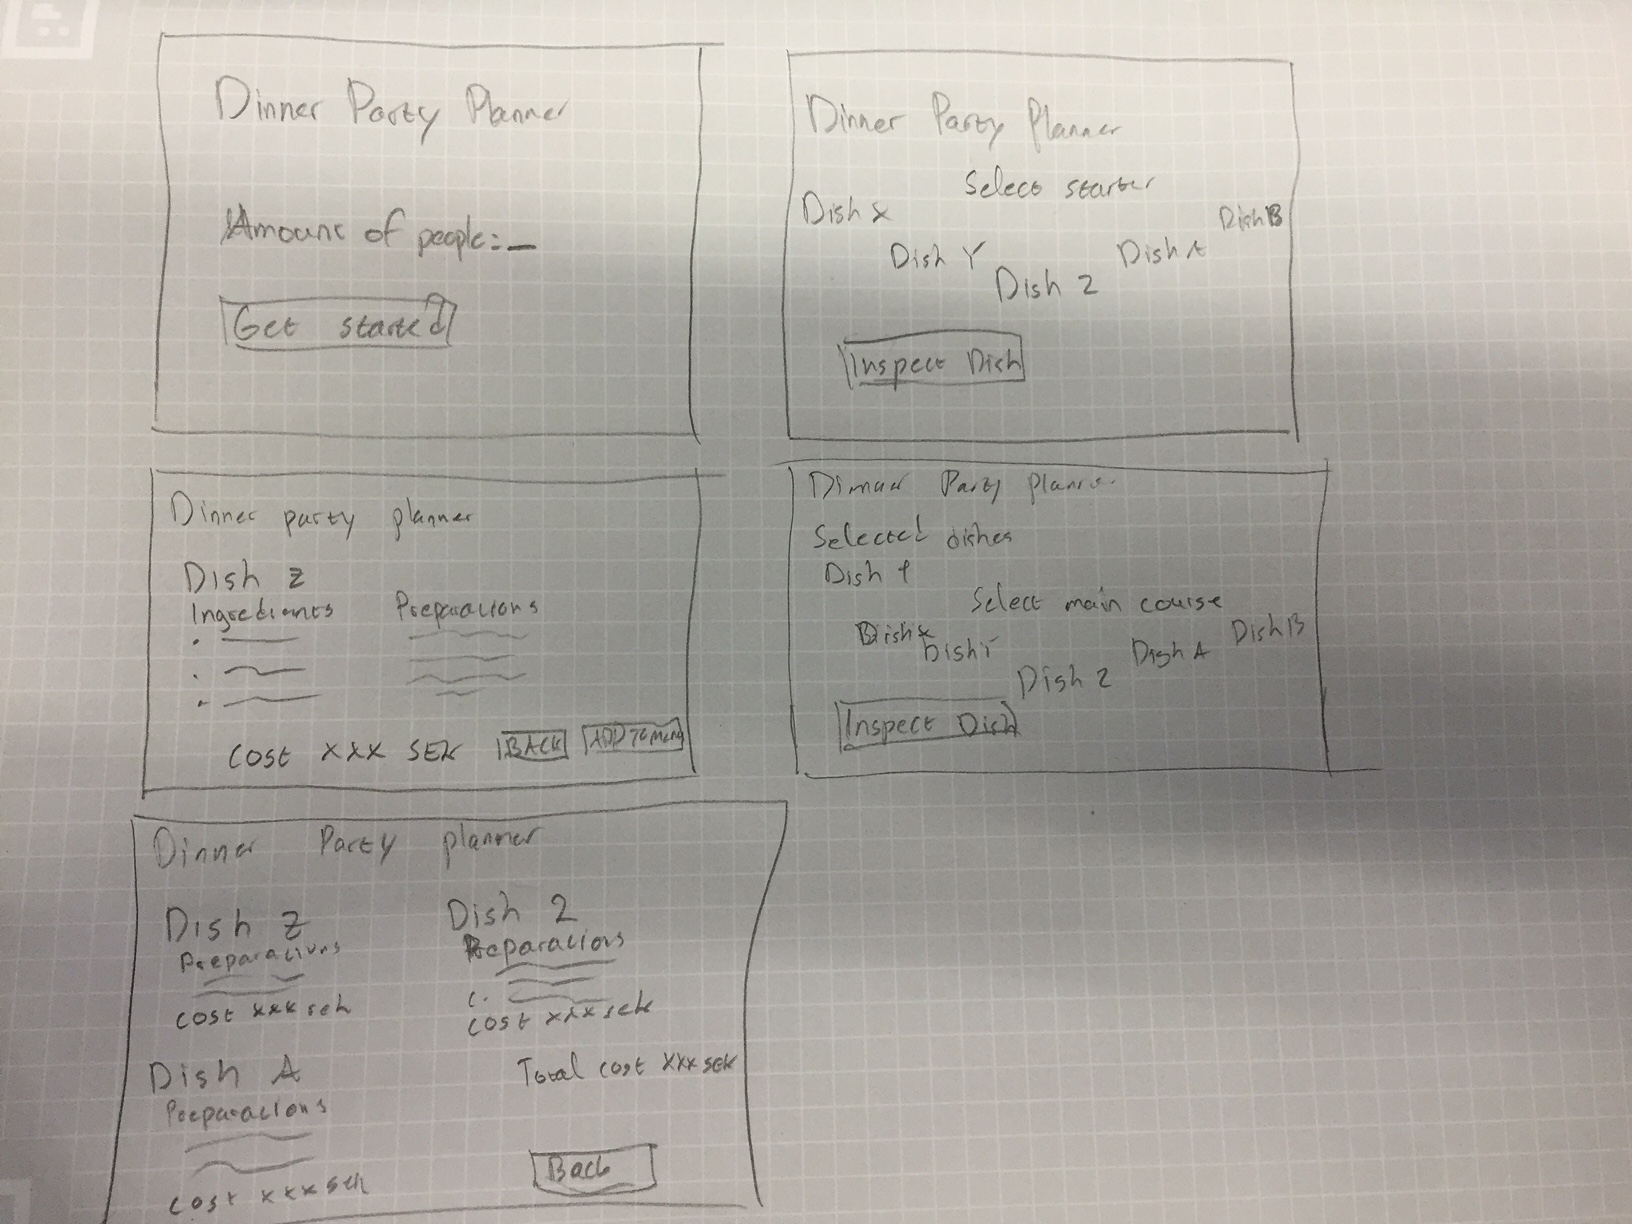 Dinner Party Planner
Amount of people: _
Get started
Dinner Party Planner
Select starter
Dish X
Dish Y
Dish Z
Dish A
Dish B
Inspect Dish
Dinner party planner
Dish Z
Ingredients Preparations
Cost xxx SEK
BACK
ADD TO menu
Dinner Party Planner
Selected dishes
Dish 1
Select main course
Dish X
Dish Y
Dish Z
Dish A
Dish B
Inspect Dish
Dinner Party planner
Dish Z
Preparations
cost xxx sek
Dish 2
Preparations
cost xxx sek
Dish A
Preparations
cost xxx sek
Total cost xxx SEK
Back